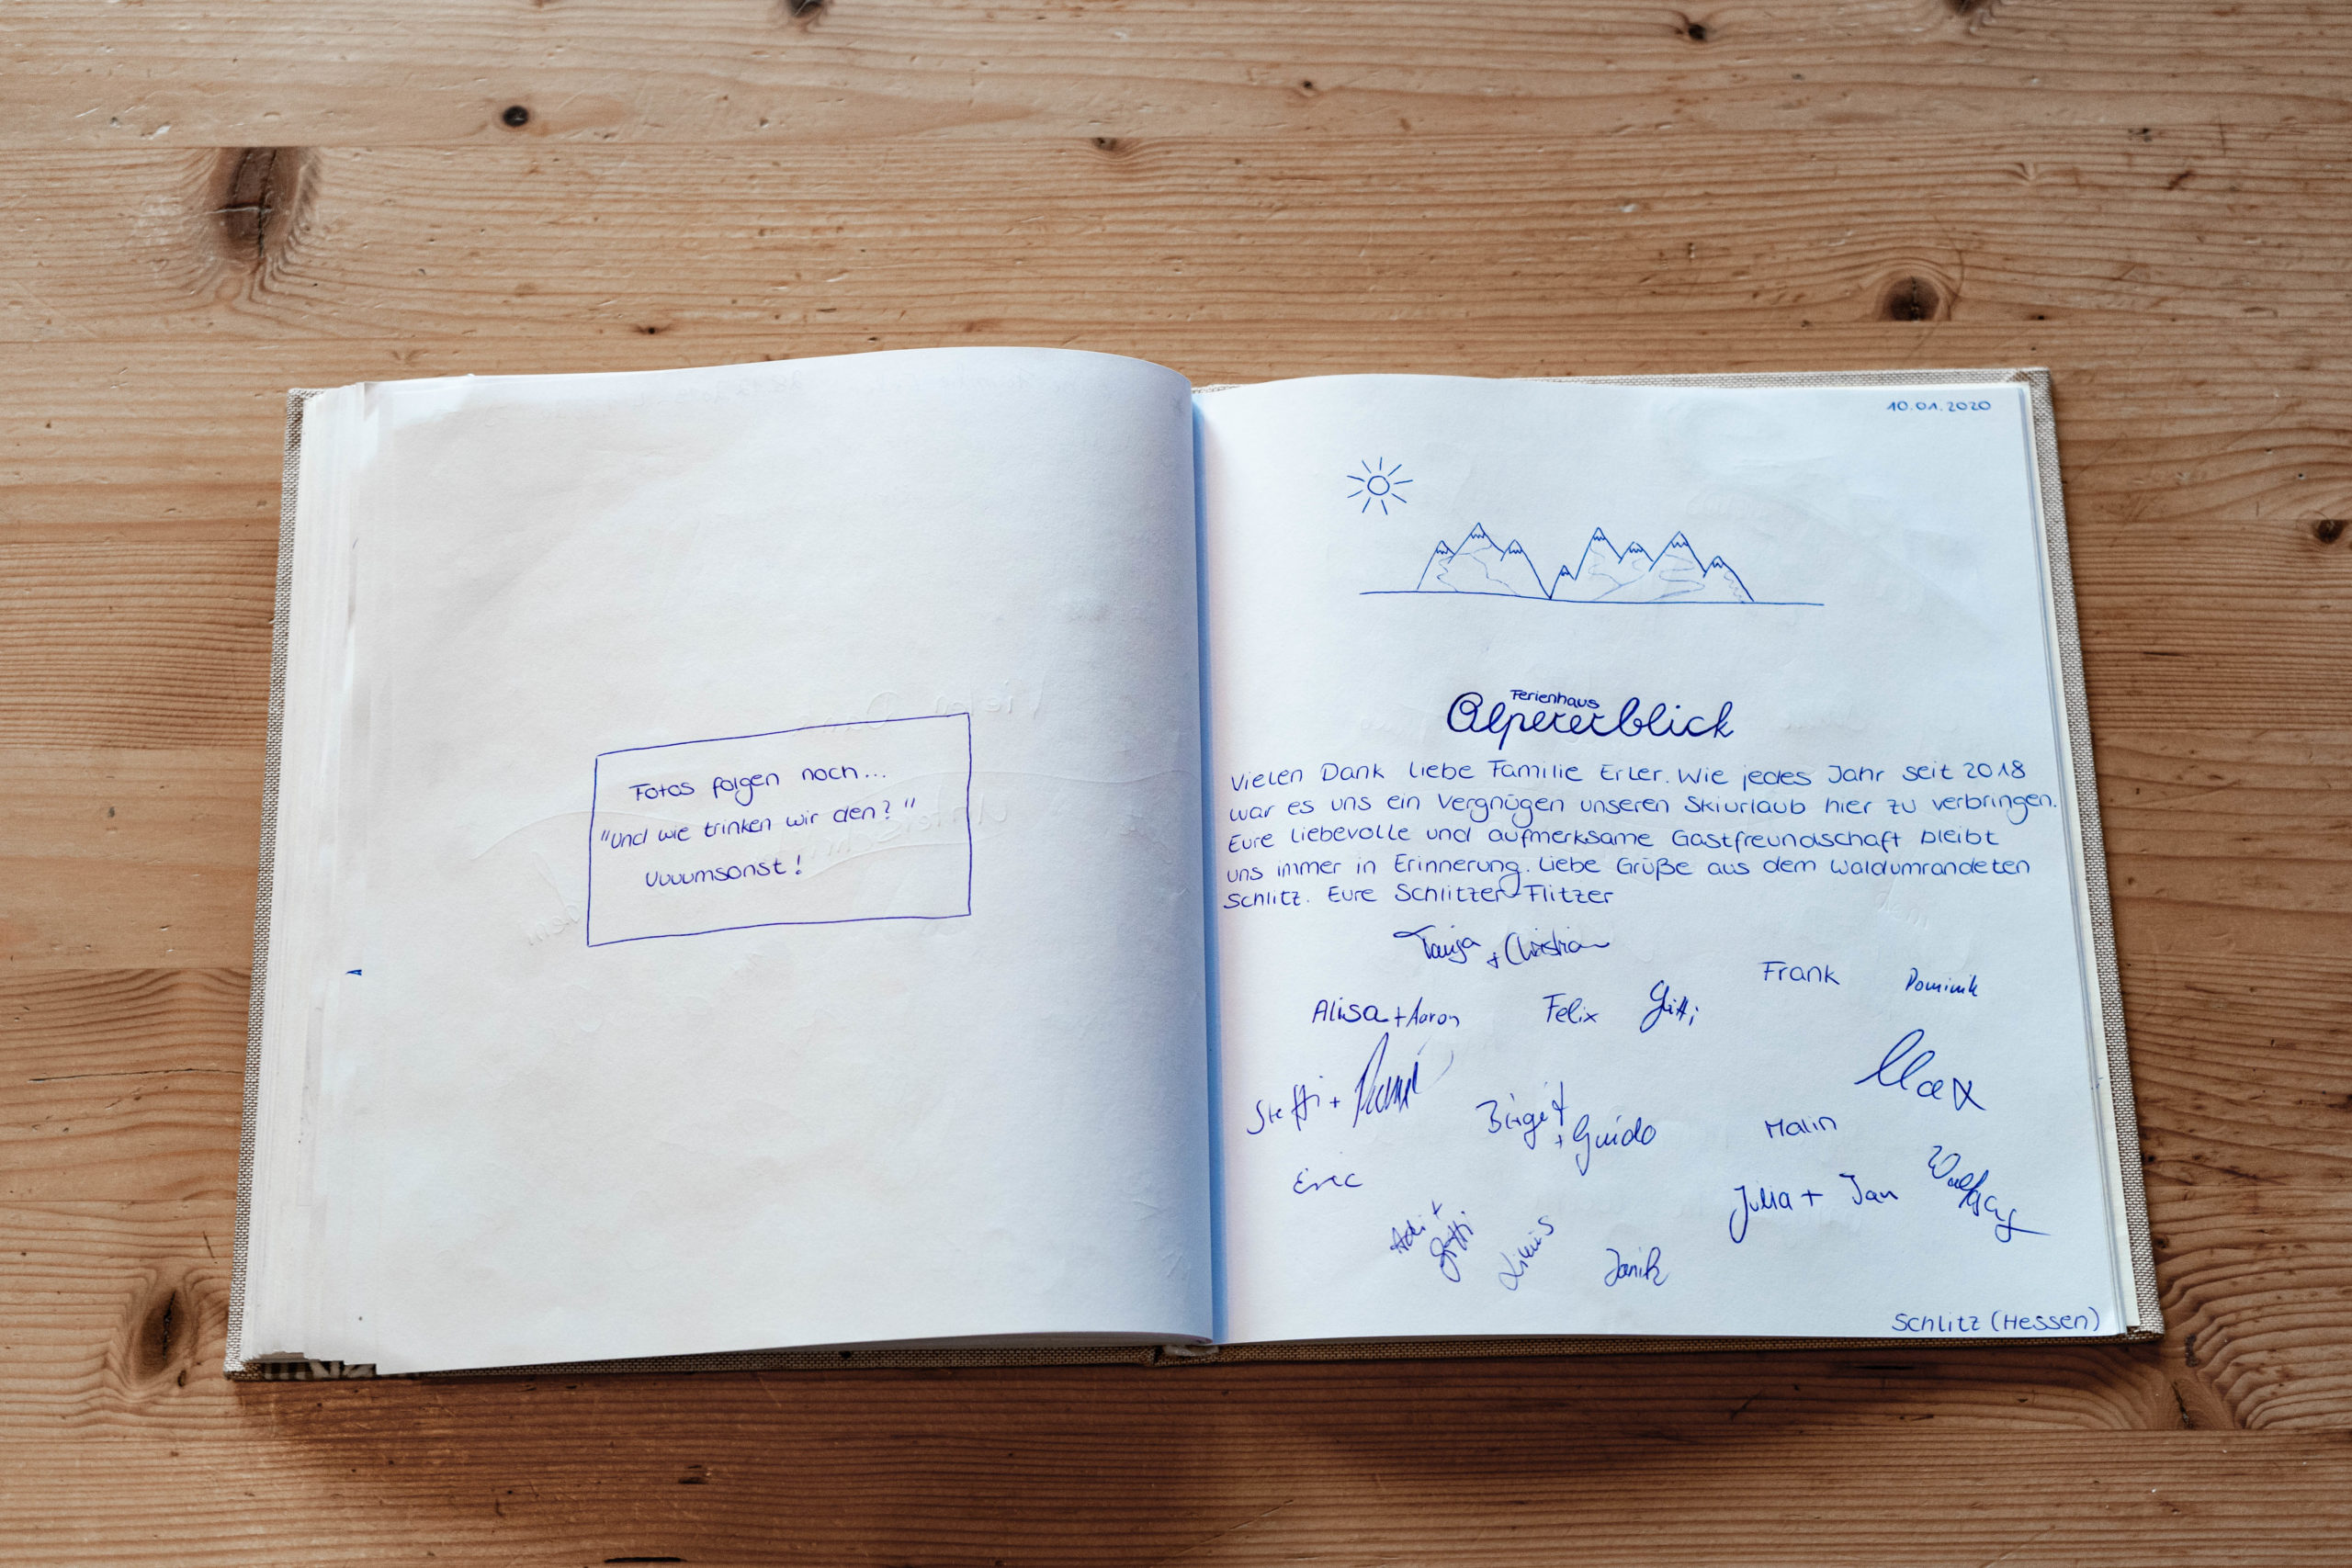 Fotos folgen noch...
"Und wie trinken wir den?"
Uuuumsonst!
10.01.2020
Ferienhaus
Alpenerblick
Vielen Dank liebe Familie Erler. Wie jedes Jahr seit 2018
war es uns ein Vergnügen unseren Skiurlaub hier zu verbringen.
Eure liebevolle und aufmerksame Gastfreundschaft bleibt
uns immer in Erinnerung. Liebe Grüße aus dem Waldumrandeten
Schlitz. Eure Schlitzer-Flitzer
Tanja + Christian
Frank
Dominik
Alisa + Aaron
Felix
Gitti
Max
Steffi +
Birgit
+ Guido
Malin
Eric
Julia + Jan
Wolfgang
Janik
Schlitz (Hessen)